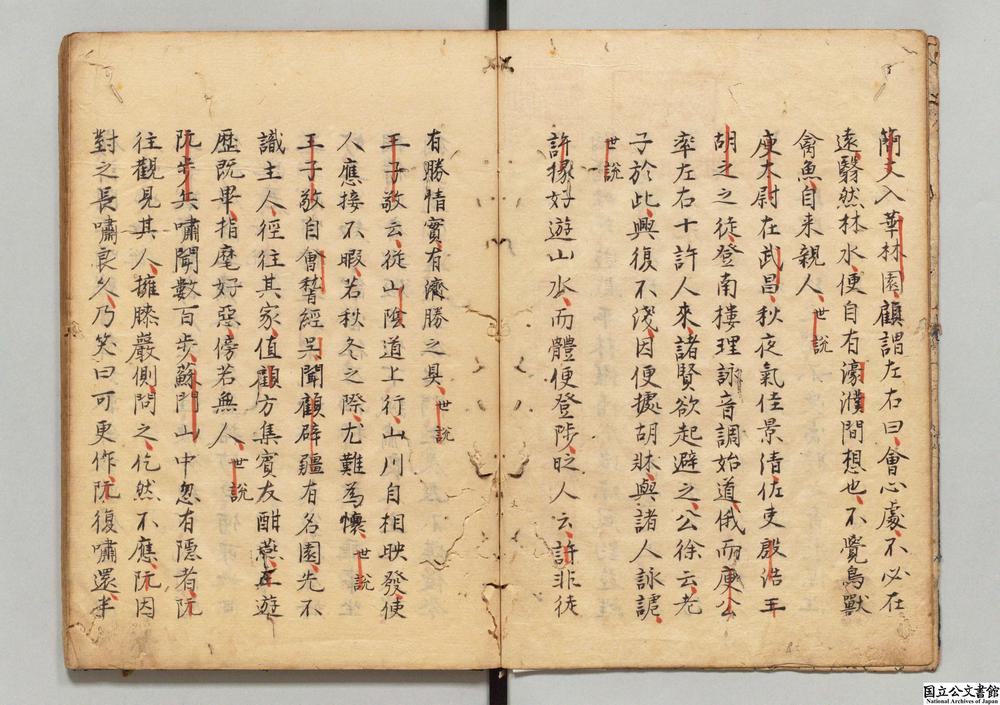 簡文入華林園顧謂左右曰會心處不必在
遠翳然林水便自有濠濮間想也不覺鳥獸
禽魚自来親人世說
庾太尉在武昌秋夜氣佳景清佐吏殷浩王
胡之之徒登南樓理詠音調始遒俄而庾公
率左右十許人來諸賢欲起避之公徐云老
子於此興復不淺因便據胡牀與諸人詠謔
世說
許掾好遊山水而體便登陟時人云許非徒
有勝情實有濟勝之具世說
王子敬云從山陰道上行山川自相映發使
人應接不暇若秋冬之際尤難為懷世說
王子敬自會稽經呉聞顧辟疆有名園先不
識主人徑往其家值顧方集賓友酣燕王遊
歴既畢指麾好惡傍若無人世說
阮步兵嘯聞數百步蘇門山中忽有隱者阮
往觀見其人擁膝巖側問之仡然不應阮因
對之長嘯良久乃笑曰可更作阮復嘯還半
国立公文書館
National Archives of Japan